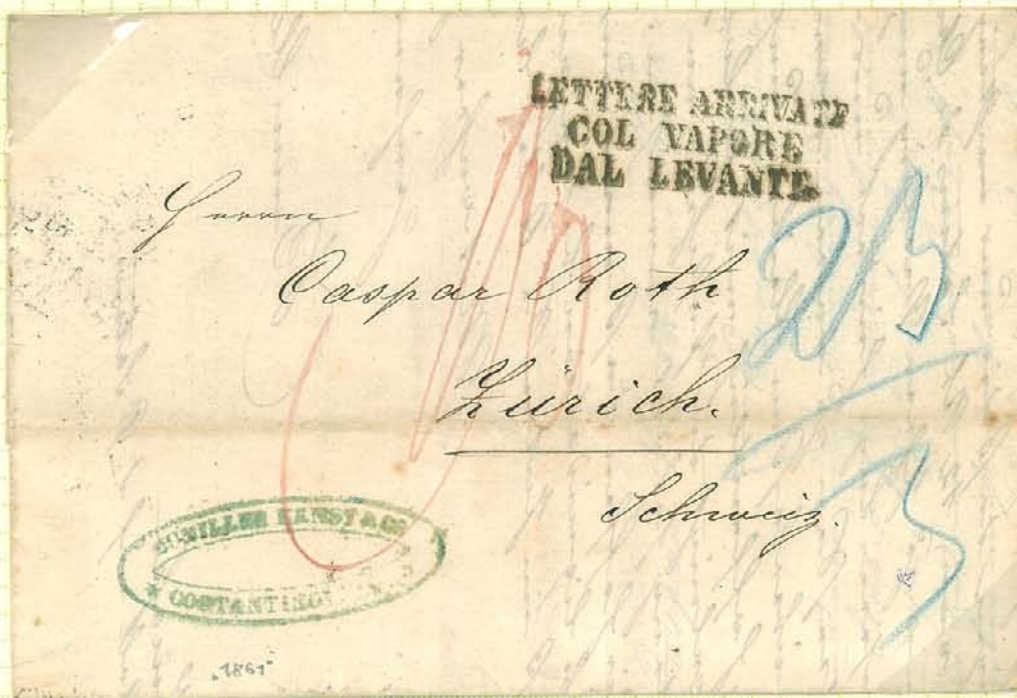 LETTERE ARRIVATE
COL VAPORE
DAL LEVANTE.
Herrn
Caspar Roth
Zürich.
Schweiz.
23
3
& CO
COSTANTINO
"1861"